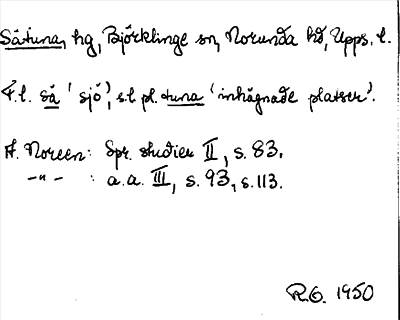 Såtuna, hg, Björklinge sn, Norunda hd, Upps. l.
F.l. så 'sjö', s.l. pl. tuna 'inhägnade platser'.
A. Noreen: Spr. studier II, s. 83.
-"- : a.a. III, s. 93, s. 113.
R.O. 1950